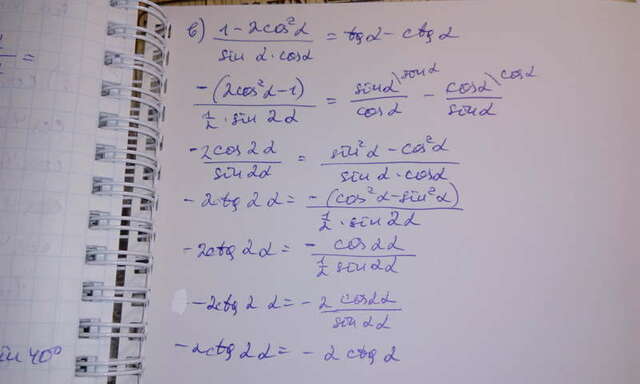 в) (1 - 2cos²α)/(sin α · cosα) = tgα - ctgα
(-(2cos²α-1))/(1/2 · sin 2α) = sinα\sinα/cosα - cosα\cosα/sinα
-2cos2α/sin2α = (sin²α - cos²α)/(sin α · cosα)
-2ctg 2α = (-(cos²α-sin²α))/(1/2 · sin 2α)
-2ctg 2α = - cos2α/(1/2 sin 2α)
-2ctg 2α = -2 cos2α/sin 2α
-2ctg 2α = -2 ctg 2
=
in 40°